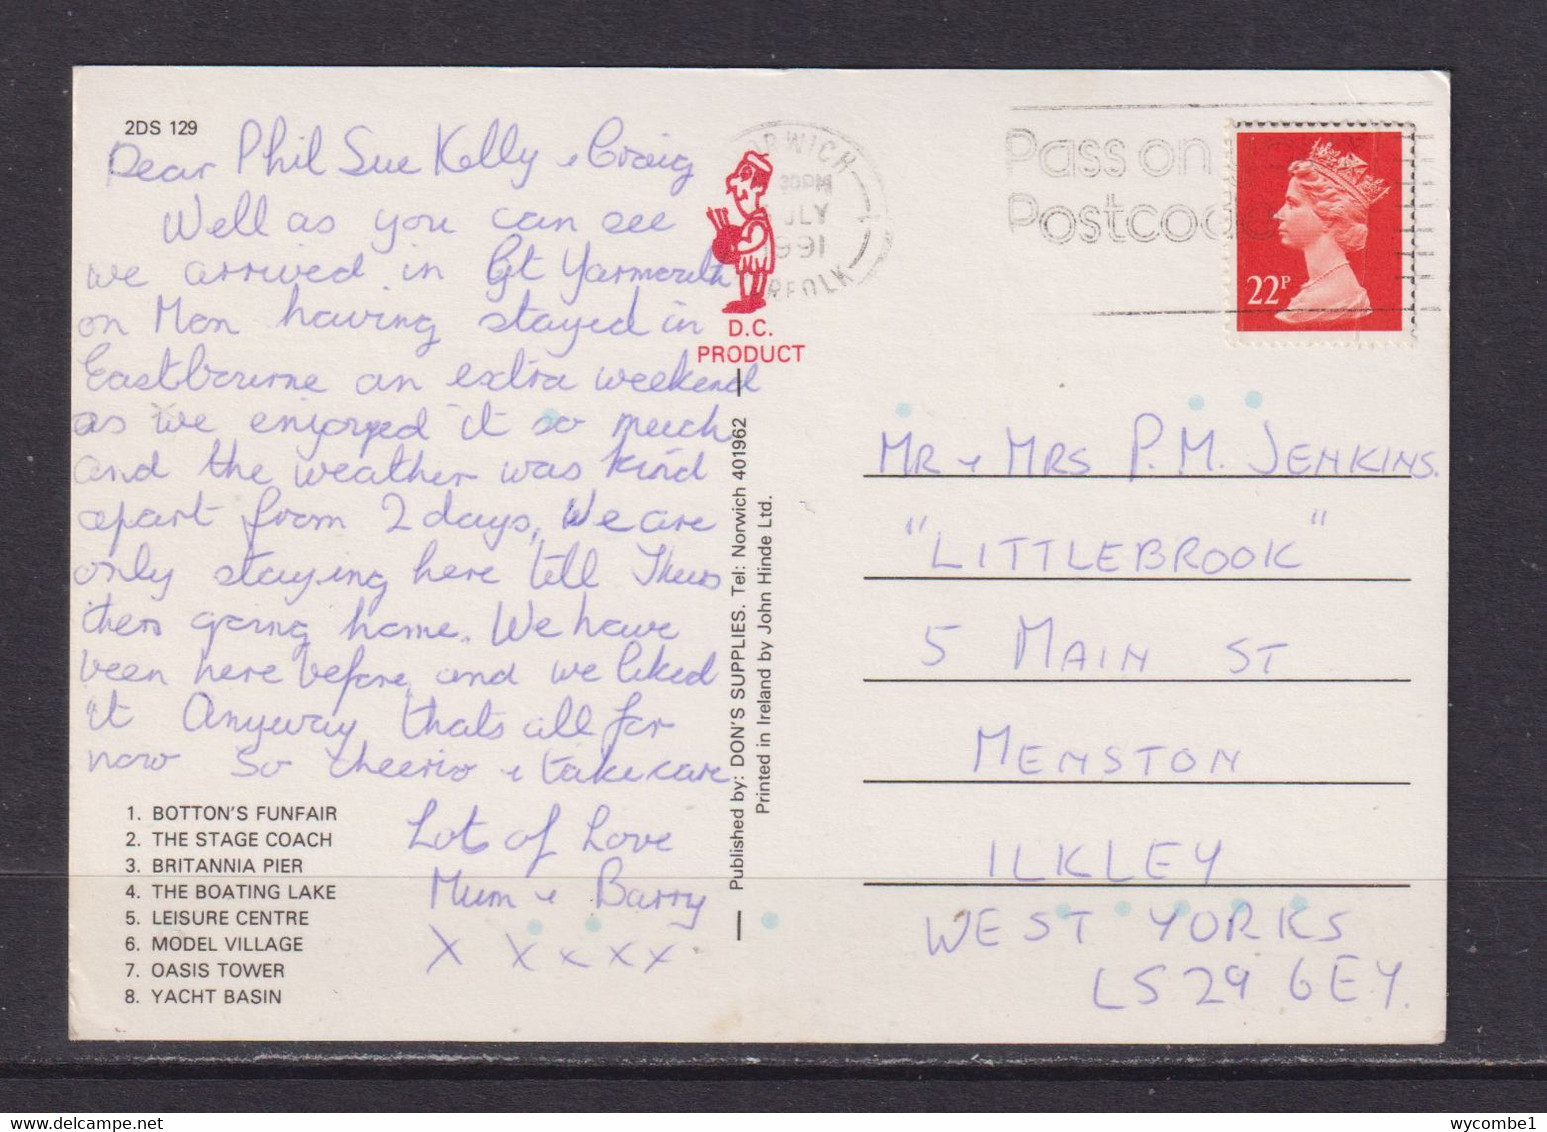 2DS 129
Dear Phil Sue Kelly & Craig
Well as you can see
we arrived in Gt Yarmouth
on Mon having stayed in
Eastbourne an extra weekend
as we enjoyed it so much
and the weather was kind
apart from 2 days, We are
only staying here till Thurs
then going home. We have
been here before and we liked
it Anyway thats all for
now So cheerio & take care
Lots of Love
Mum & Barry
X X X X X
1. BOTTON'S FUNFAIR
2. THE STAGE COACH
3. BRITANNIA PIER
4. THE BOATING LAKE
5. LEISURE CENTRE
6. MODEL VILLAGE
7. OASIS TOWER
8. YACHT BASIN
D.C.
PRODUCT
Published by: DON'S SUPPLIES. Tel: Norwich 401962
Printed in Ireland by John Hinde Ltd.
30PM
JLY
991
Pass on
Postcode
22P
MR & MRS P. M. JENKINS.
"LITTLEBROOK"
5 MAIN ST
MENSTON
ILKLEY
WEST YORKS
LS29 6EY.
wycombe1